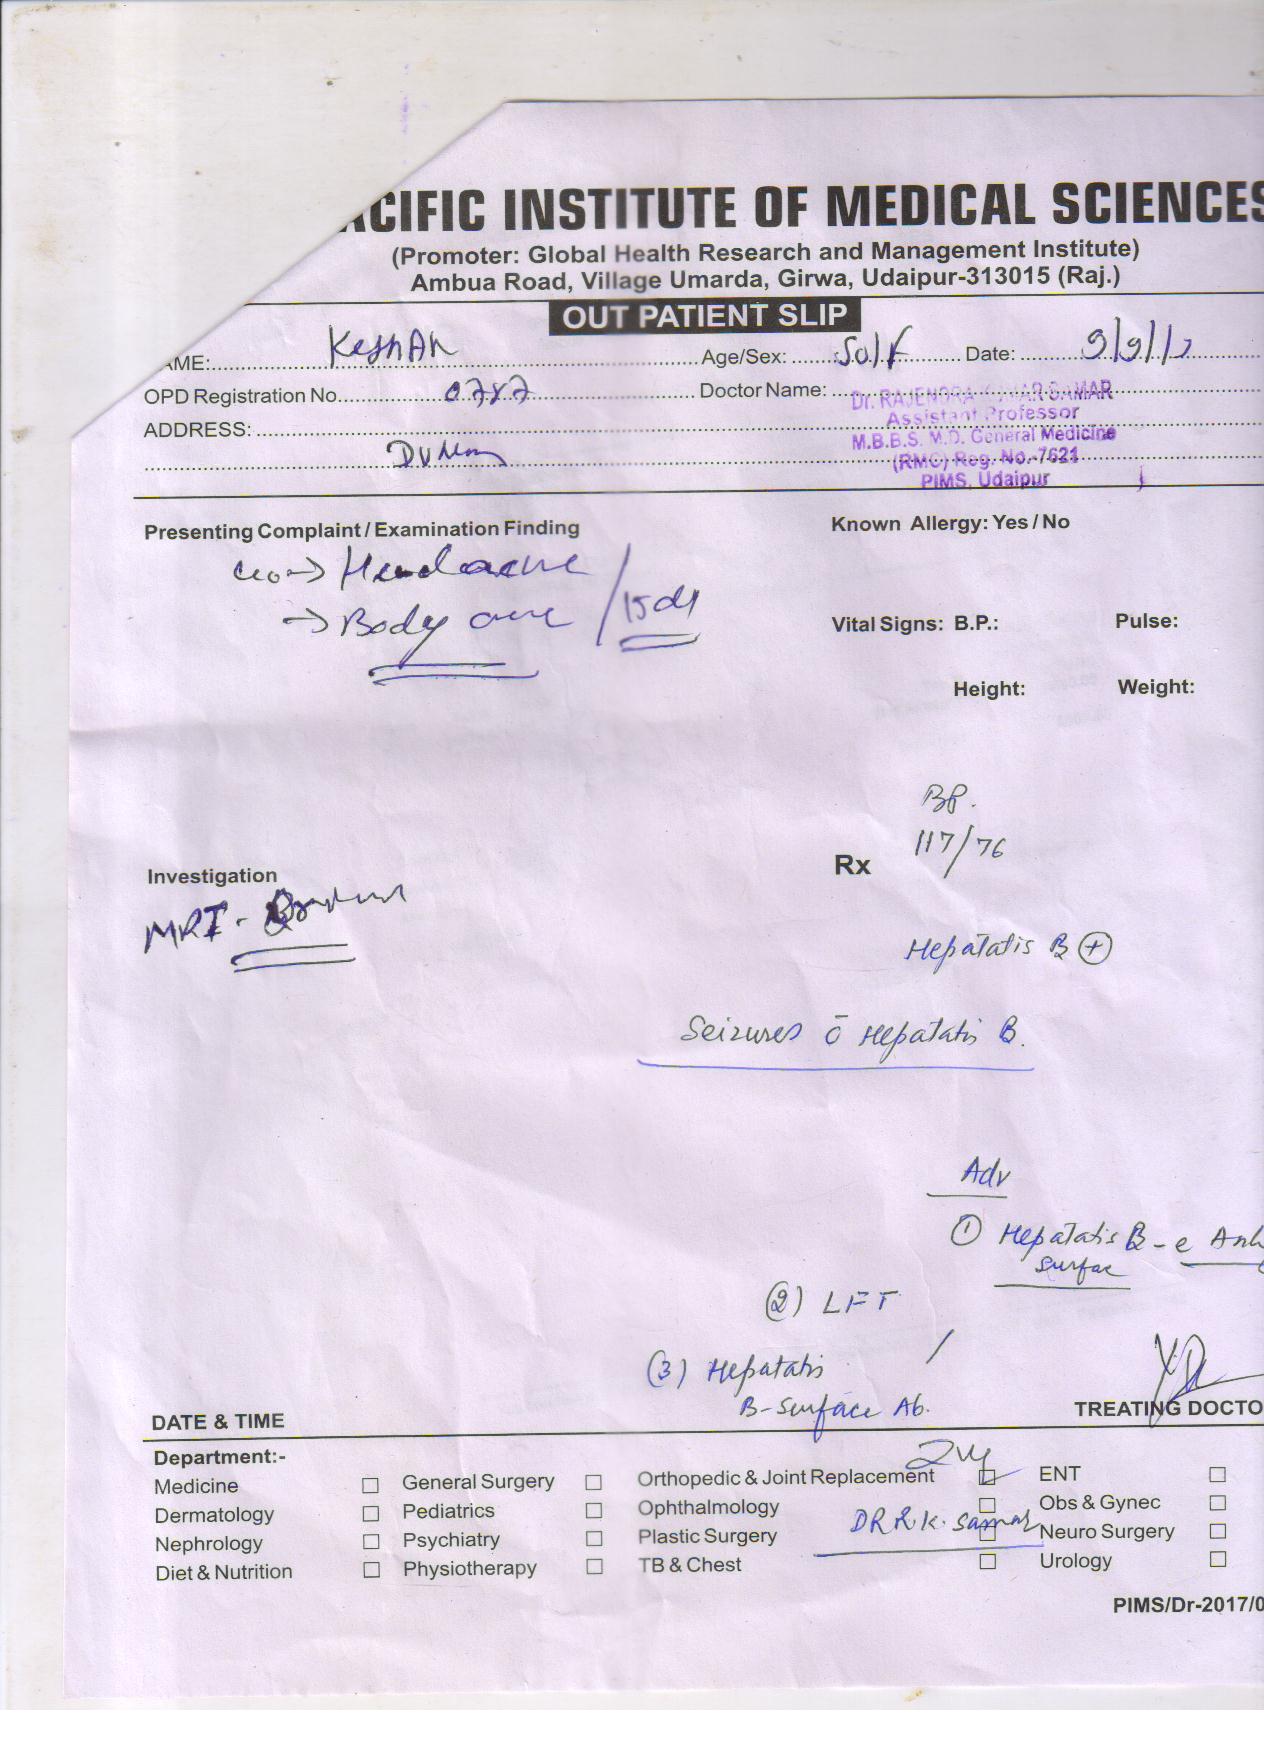 ACIFIC INSTITUTE OF MEDICAL SCIENCES
(Promoter: Global Health Research and Management Institute)
Ambua Road, Village Umarda, Girwa, Udaipur-313015 (Raj.)
OUT PATIENT SLIP
AME: Age/Sex: 50/F Date: 9/9/17
OPD Registration No. 0787 Doctor Name: Dr. RAJENDRA KUMAR SAMAR
Assistant Professor
ADDRESS: M.B.B.S. M.D. General Medicine
(RMC) Reg. No.-7621
PIMS, Udaipur
Presenting Complaint / Examination Finding Known Allergy: Yes / No
c/o → Headache
→ Body ache / 15 d
Vital Signs: B.P.: Pulse:
Height: Weight:
BP.
117/76
Rx
Investigation
MRI -
Hepatatis B +
Seizures c̄ Hepatatis B.
Adv
① Hepatatis B - e
surfac
(2) LFT
(3) Hepatatis
B-surface Ab.
DATE & TIME TREATING DOCTO
Department:-
Medicine General Surgery Orthopedic & Joint Replacement ENT
Dermatology Pediatrics Ophthalmology Obs & Gynec
Nephrology Psychiatry Plastic Surgery DR R.K. Samar Neuro Surgery
Diet & Nutrition Physiotherapy TB & Chest Urology
PIMS/Dr-2017/0